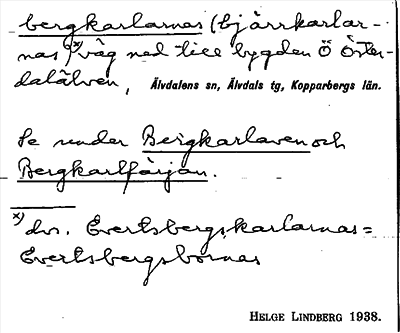 bergkarlarnas (bjärrkarlar-
nas)x) väg ned till bygden Ö Öster-
dalälven, Älvdalens sn, Älvdals tg, Kopparbergs län.
Se under Bergkarlaven och
Bergkarlfärjan.
x) dvs. Evertsbergskarlarnas=
Evertsbergsbornas
HELGE LINDBERG 1938.